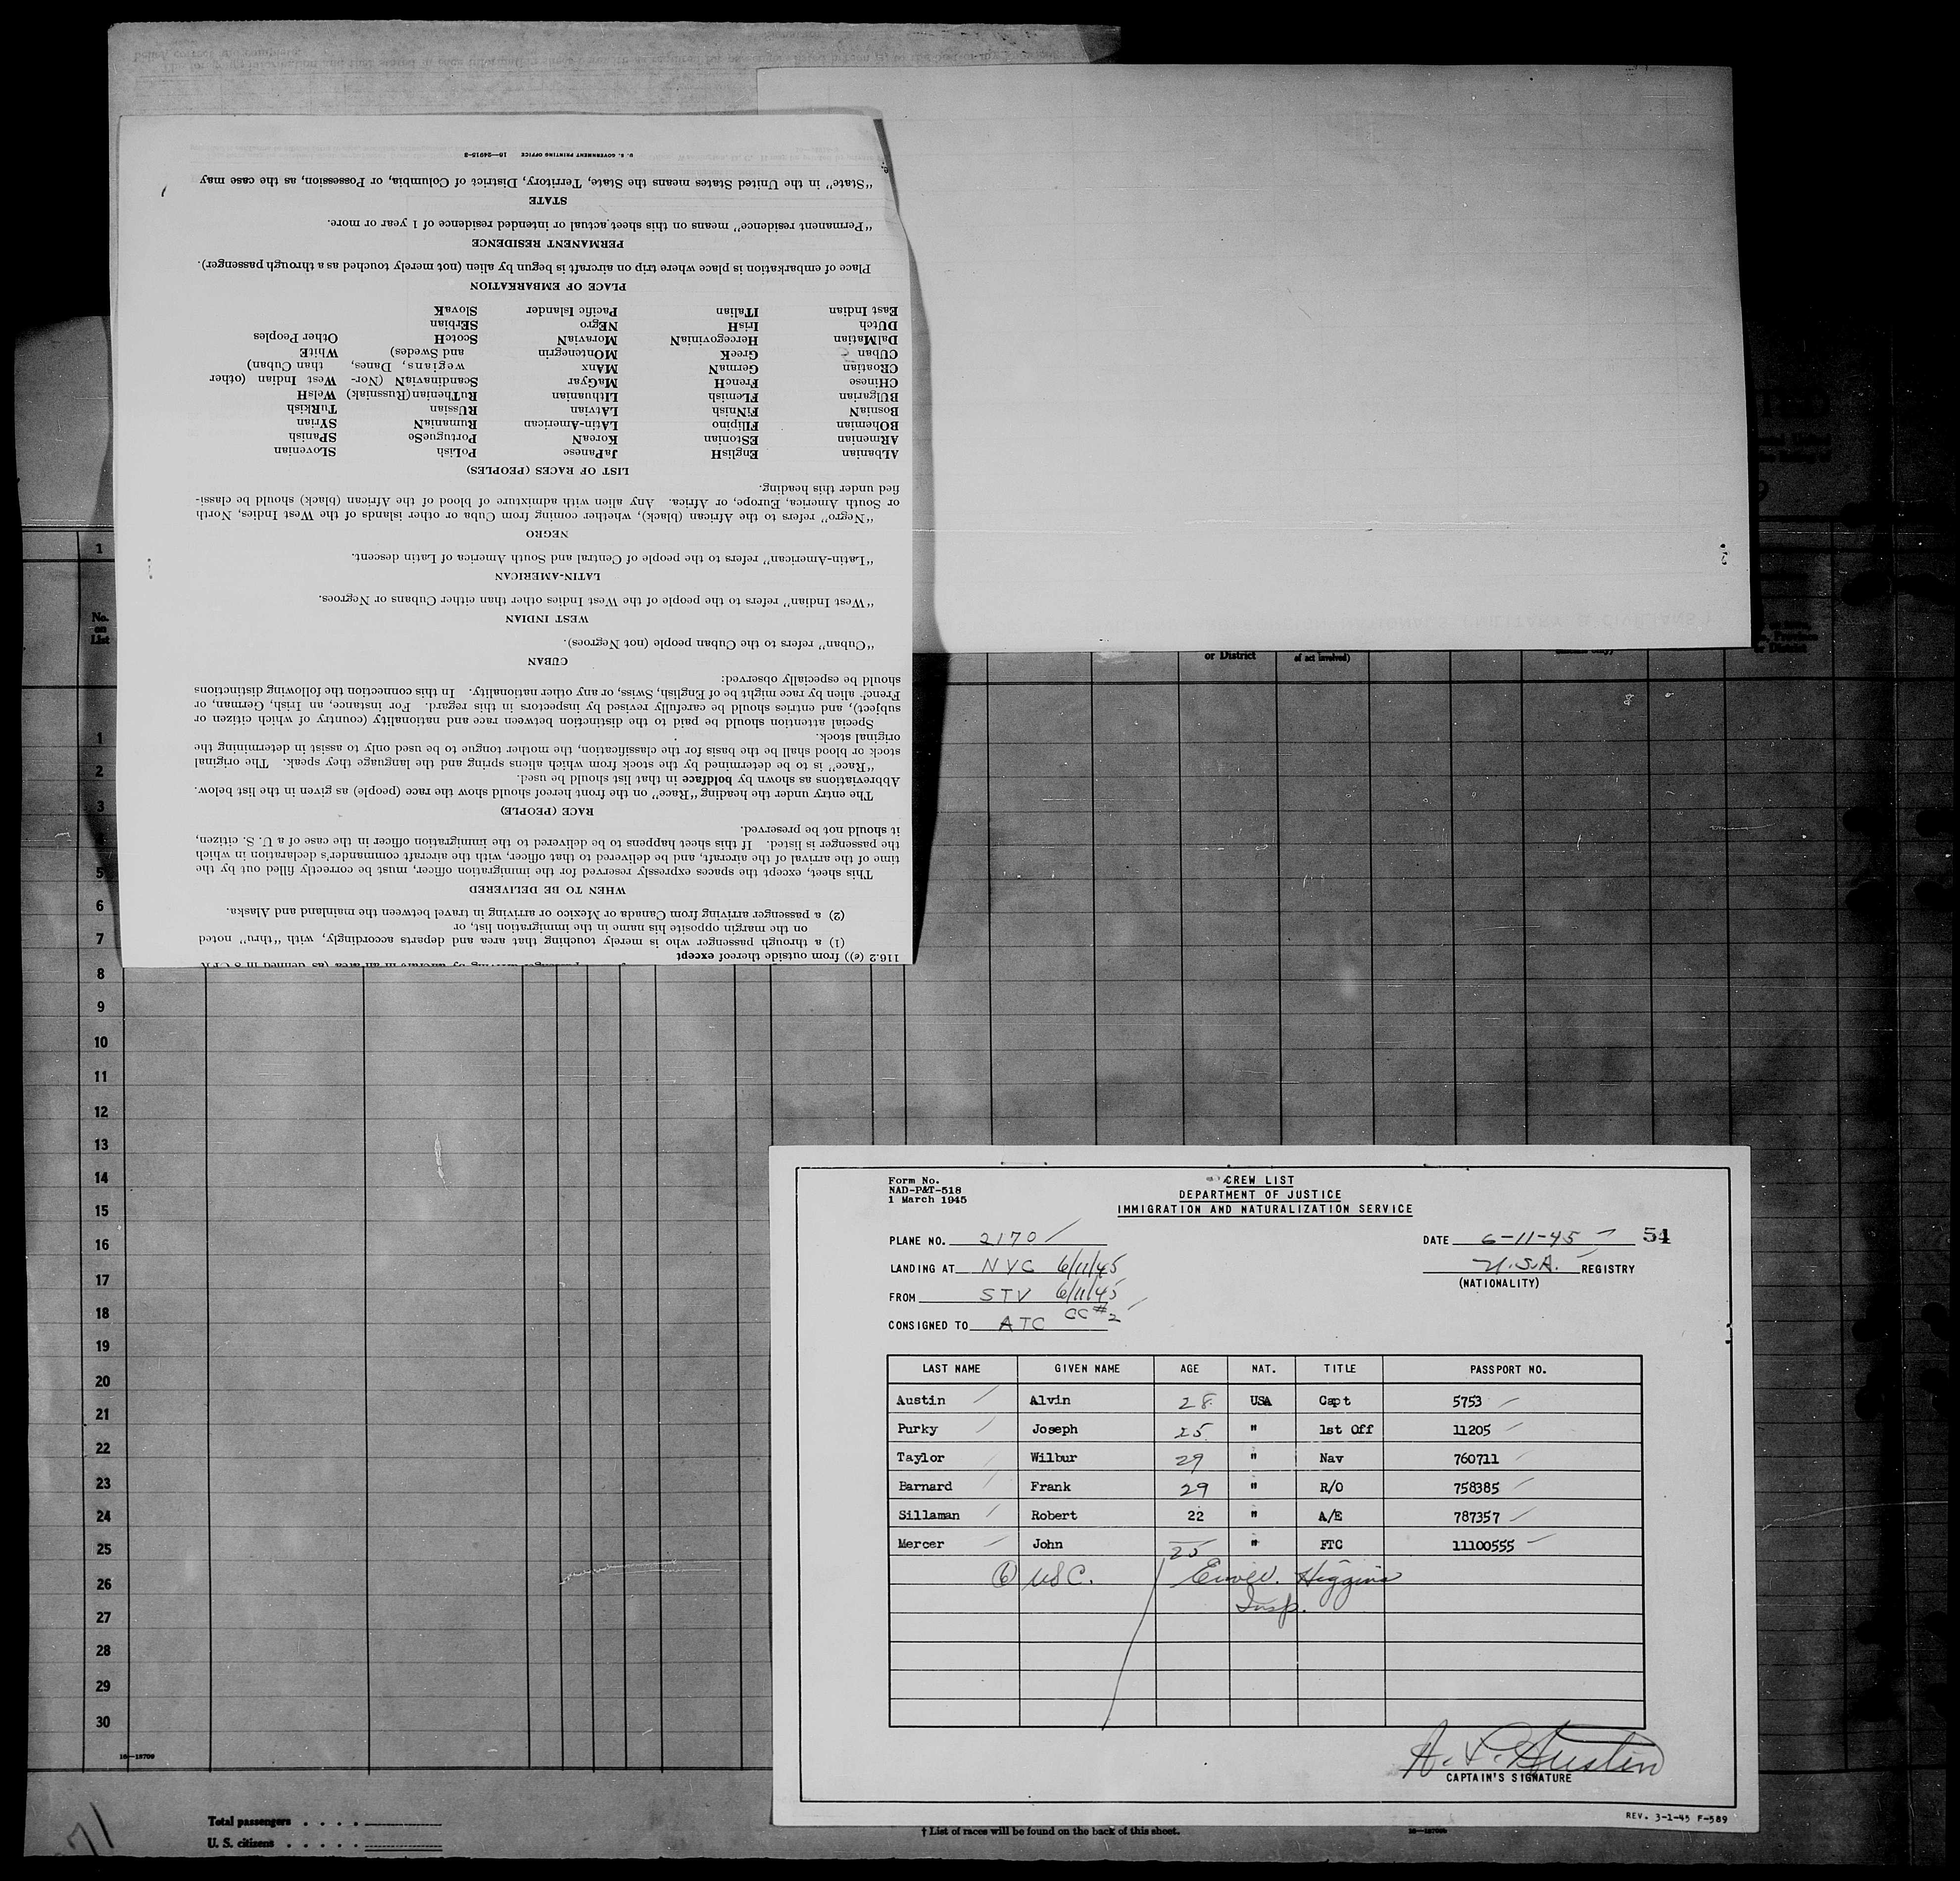 U. S. GOVERNMENT PRINTING OFFICE 16—24915-3
"State" in the United States means the State, Territory, District of Columbia, or Possession, as the case may
STATE
"Permanent residence" means on this sheet actual or intended residence of 1 year or more.
PERMANENT RESIDENCE
Place of embarkation is place where trip on aircraft is begun by alien (not merely touched as a through passenger).
PLACE OF EMBARKATION
East Indian ITalian Pacific Islander SlovaK
DUtch IrisH NEgro SErbian
DalMatian HercegoviniaN MoraviaN ScotcH Other Peoples
CUban GreeK MOntenegrin and Swedes) WhitE
CRoatian GermaN MAnx wegians, Danes, than Cuban)
CHinese FrencH MaGyar ScandinaviaN (Nor- West Indian (other
BUlgarian FLemish LIthuanian RuThenian (Russniak) WelsH
BosniaN FiNnish LAtvian RUssian TuRkish
BOhemian FIlipino LAtin-American RumaniaN SYrian
ARmenian EStonian KoreaN PortugueSe SPanish
ALbanian EnglisH JaPanese PoLish SLovenian
LIST OF RACES (PEOPLES)
fied under this heading.
or South America, Europe, or Africa. Any alien with admixture of blood of the African (black) should be classi-
"Negro" refers to the African (black), whether coming from Cuba or other islands of the West Indies, North
NEGRO
"Latin-American" refers to the people of Central and South America of Latin descent.
LATIN-AMERICAN
"West Indian" refers to the people of the West Indies other than either Cubans or Negroes.
WEST INDIAN
"Cuban" refers to the Cuban people (not Negroes).
CUBAN
should be especially observed:
French alien by race might be of English, Swiss, or any other nationality. In this connection the following distinctions
subject), and entries should be carefully revised by inspectors in this regard. For instance, an Irish, German, or
Special attention should be paid to the distinction between race and nationality (country of which citizen or
original stock.
stock or blood shall be the basis for the classification, the mother tongue to be used only to assist in determining the
"Race" is to be determined by the stock from which aliens spring and the language they speak. The original
Abbreviations as shown by boldface in that list should be used.
The entry under the heading "Race" on the front hereof should show the race (people) as given in the list below.
RACE (PEOPLE)
it should not be preserved.
the passenger is listed. If this sheet happens to be delivered to the immigration officer in the case of a U. S. citizen,
time of the arrival of the aircraft, and be delivered to that officer, with the aircraft commander's declaration in which
This sheet, except the spaces expressly reserved for the immigration officer, must be correctly filled out by the
WHEN TO BE DELIVERED
(2) a passenger arriving from Canada or Mexico or arriving in travel between the mainland and Alaska.
on the margin opposite his name in the immigration list, or
(1) a through passenger who is merely touching that area and departs accordingly, with "thru" noted
116.2 (e)) from outside thereof except
1
No.
on
List
or District
of act involved)
1
2
3
5
6
7
8
9
10
11
12
13
14
15
16
17
18
19
20
21
22
23
24
25
26
27
28
29
30
16—18709
Total passengers . . . .
U. S. citizens . . . . .
† List of races will be found on the back of this sheet.
Form No.
NAD-P&T-518
1 March 1945
CREW LIST
DEPARTMENT OF JUSTICE
IMMIGRATION AND NATURALIZATION SERVICE
PLANE NO. 2170
DATE 6-11-45 51
LANDING AT NYC 6/11/45
U.S.A. REGISTRY
(NATIONALITY)
FROM STV 6/11/45
CC #2
CONSIGNED TO ATC
LAST NAME GIVEN NAME AGE NAT. TITLE PASSPORT NO.
Austin Alvin 28 USA Capt 5753
Purky Joseph 25 " 1st Off 11205
Taylor Wilbur 29 " Nav 760711
Barnard Frank 29 " R/O 758385
Sillaman Robert 22 " A/E 787357
Mercer John 25 " FTC 11100555
6 USC. Higgins
Insp.
A. L. Austin
CAPTAIN'S SIGNATURE
REV. 3-1-45 F-589